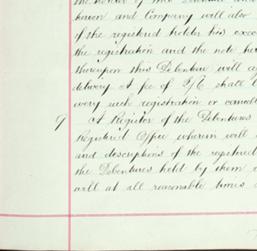 the holder of this Debenture and
haven and Company will also
of the registered holder his execu
the registration and the note her
thereupon this Debenture will ag
delivery. A fee of 2/6 shall b
every such registration or cancell
9 A Register of the Debentures
Registered Office wherein will
and descriptions of the registered
the Debentures held by them
will at all reasonable times